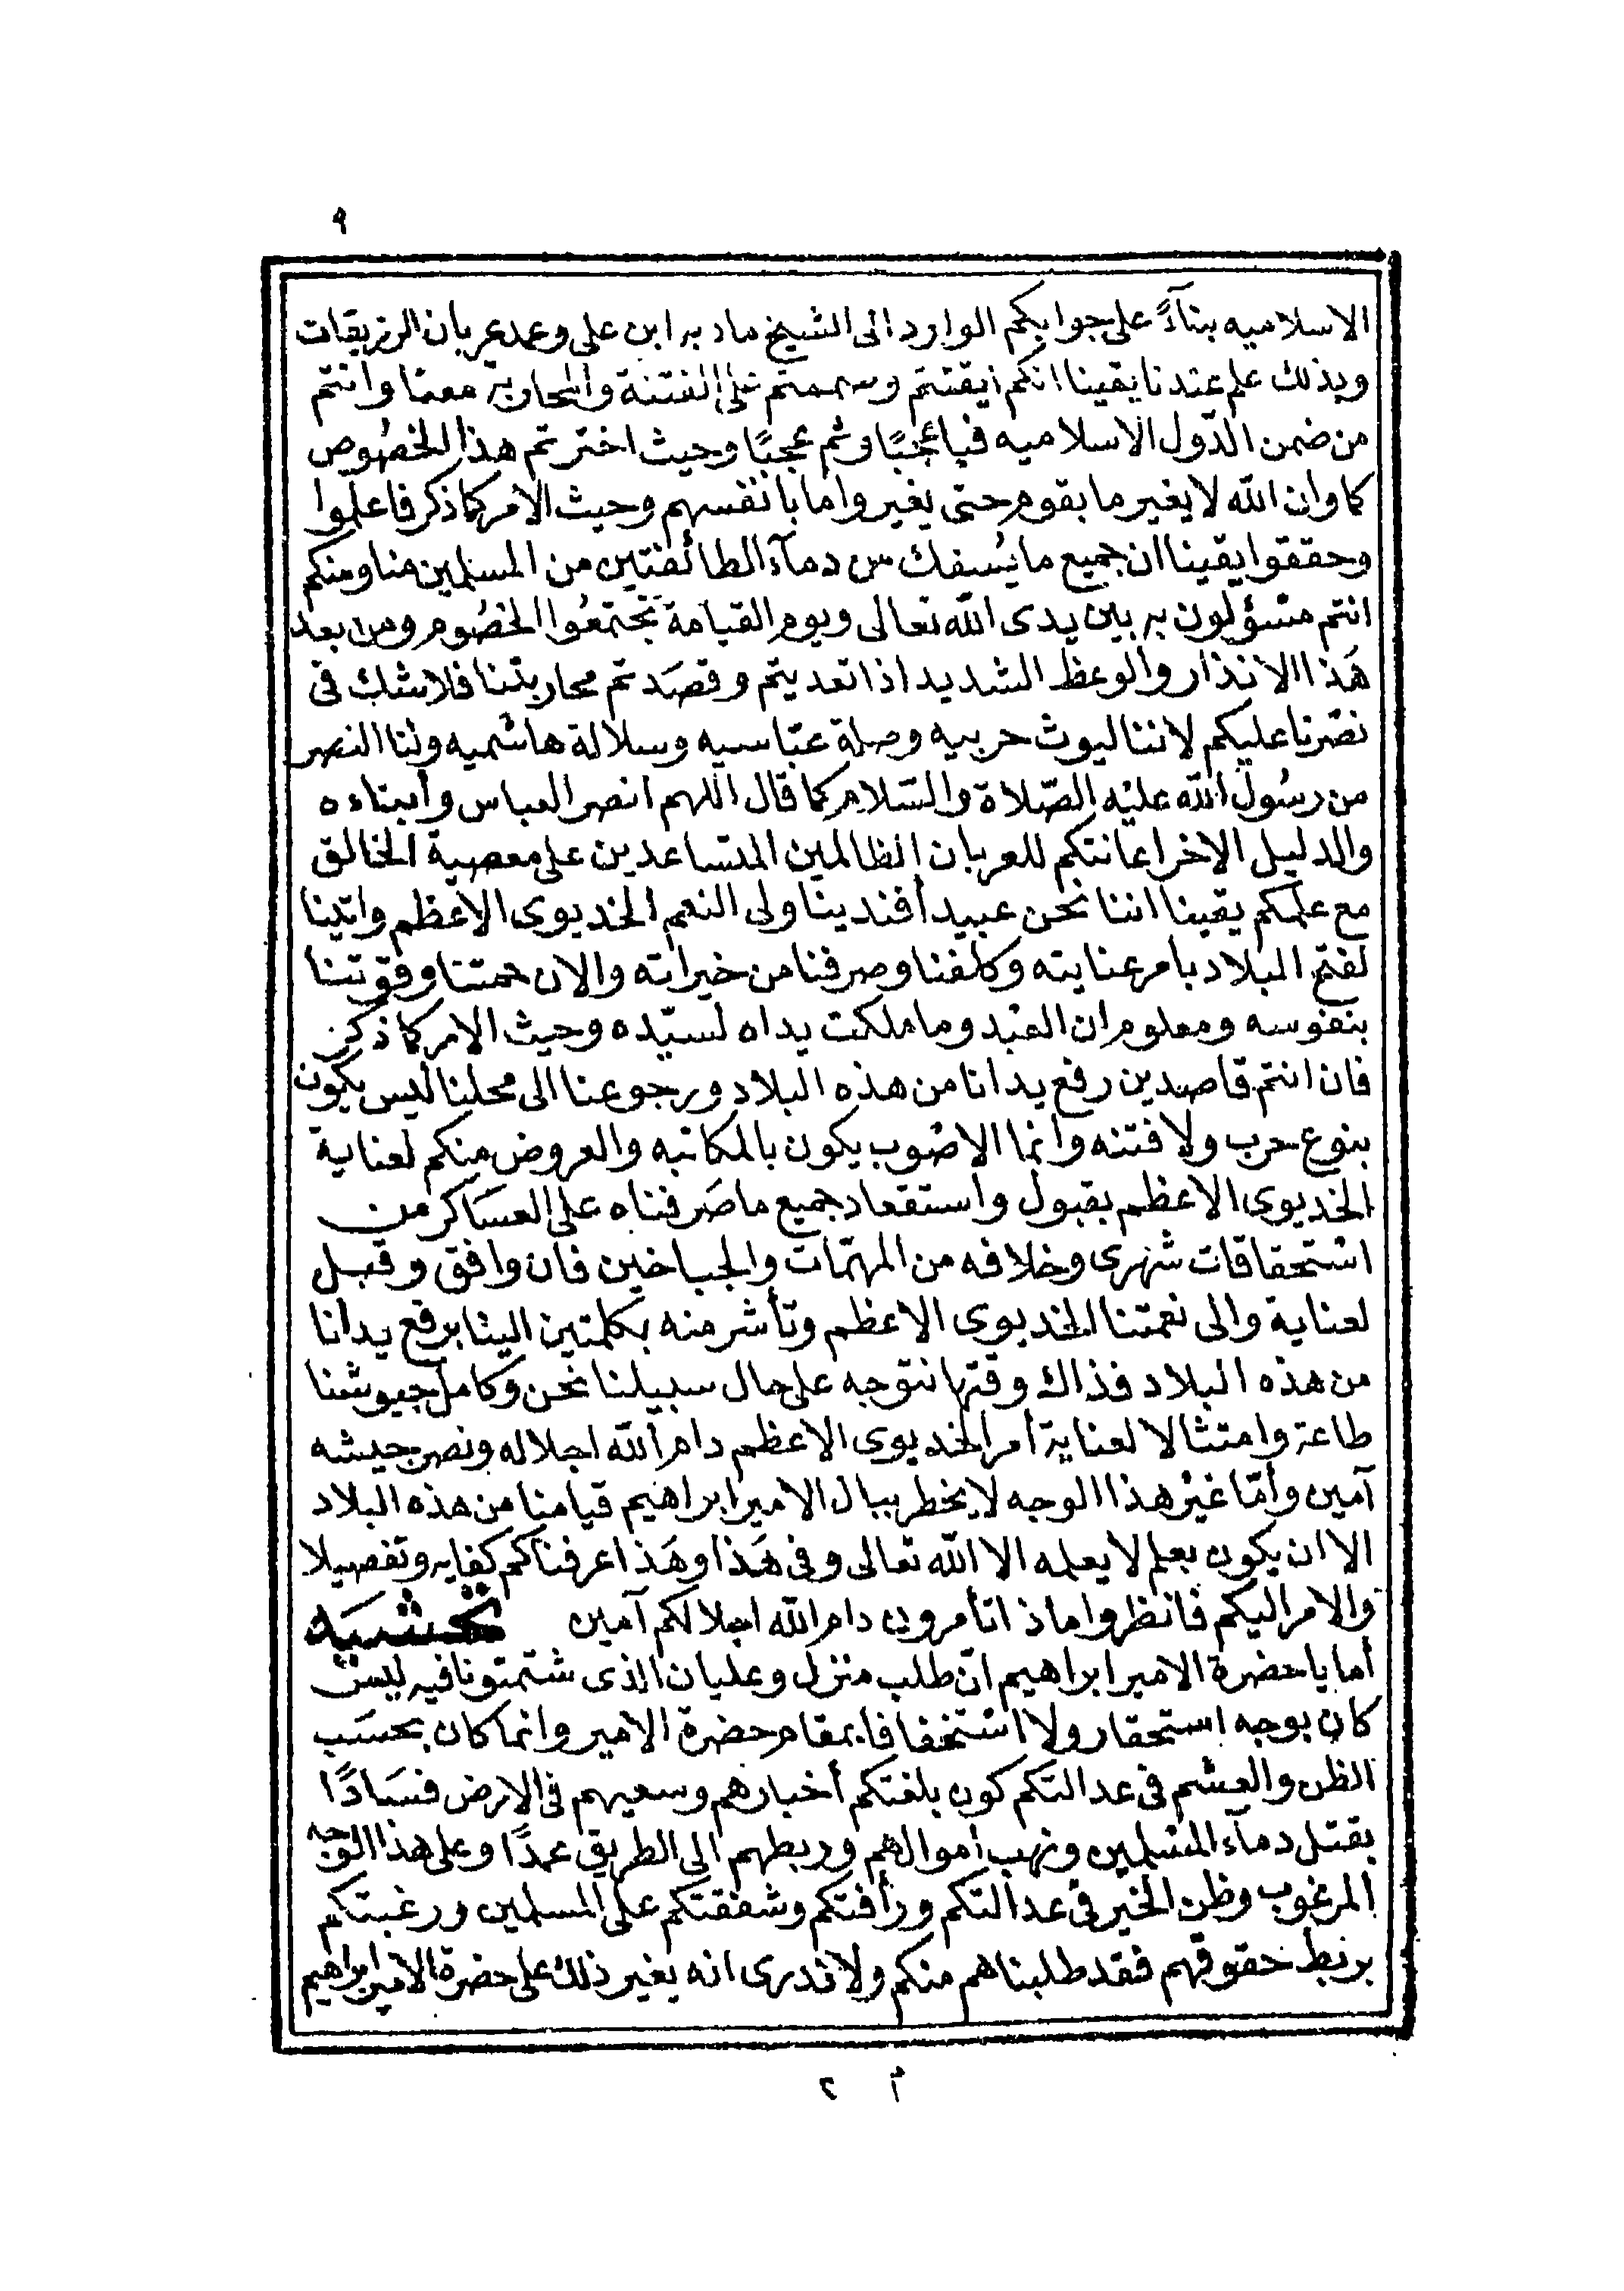 ٩
الاسلاميه بنآءً على جوابكم الوارد الى الشيخ مادبه ابن على وعمد عربان الرزيقات
وبذلك علم عندنا يقينا انكم أيقنتم وصممتم على الفتنة والمحاربة معنا وانتم
من ضمن الدّول الاسلاميه فيا عجبًا وثم عجبًا وحيث اخترتم هذا الخصُوص
كما وان الله لا يغير ما بقوم حتى يغيروا ما بانفسهم وحيث الامر كما ذكر فاعلموا
وحققوا يقينا ان جميع ما يُسفك من دمآء الطائفتين من المسلمين منا ومنكم
انتم مسؤلون به بين يدى الله تعالى ويوم القيامة تجتمعُوا الخصُوم ومن بعد
هَذا الانذار والوعظ الشديد اذا تعديتم وقصَدتم محاربتنا فلا شك فى
نصْرنا عليكم لاننا ليوث حربيه وصلة عبّاسيه وسلالة هاشميه ولنا النصر
من رسُول الله عليْه الصّلاة والسّلام كما قال اللهم انصر العباس وأبناءه
والدليل الاخر اعانتكم للعربان الظالمين المتساعدين على معصية الخالق
مع علمكم يقينا اننا نحن عبيد أفندينا ولى النعم الخديوى الاعظم واتينا
لفتح البلاد بامر عنايته وكلفنا وصرفنا من خيراته والان همتنا وقوّتنا
بنفوسه ومعلوم ان العبْد وما ملكت يداه لسيّده وحيث الامر كما ذكر
فان انتم قاصدين رفع يدانا من هذه البلاد ورجوعنا الى محلنا ليس يكون
بنوع حرب ولا فتنه وانما الاصْوب يكون بالمكاتبه والعروض منكم لعناية
الخديوى الاعظم بقبول واستقعاد جميع ما صَرفناه على العسَاكر من
اسْتحقاقات شهرى وخلافه من المهمّات والجباخين فان وافق وقبل
لعناية والى نعمتنا الخديوى الاعظم وتأشر منه بكلمتين الينا برفع يدانا
من هذه البلاد فذاك وقتها نتوجه على حال سبيلنا نحن وكامل جيوشنا
طاعة وامتثالا لعناية أمر الخديوى الاعظم دام الله اجلاله ونصر جيشه
آمين وأمّا غيْر هذا الوجه لا يخطر ببال الامير ابراهيم قيامنا من هذه البلاد
الا ان يكون بعلم لا يعلمه الا الله تعالى وفى هَذا وهَذا عرفناكم كفايه وتفصيلا
والامر اليكم فانظروا ماذا تأمرون دام الله اجلالكم آمين تحْشيَه
أما يا حضرة الامير ابراهيم انّ طلب منزل وعليان الذى شتمتونا فيه ليس
كان بوجه استحقار ولا اسْتخفافا بمقام حضرة الامير وانما كان بحسَب
الظن والعشم فى عدالتكم كون بلغتكم أخبارهم وسعيهم فى الارض فسَادًا
بقتل دمآء المسْلمين ونهب أموالهم وربطهم الى الطريق عمدًا وعلى هذا الوجه
المرغوب وظن الخير فى عدالتكم ورأفتكم وشفقتكم على المسلمين ورغبتكم
بربط حقوقهم فقد طلبناهم منكم ولا ندرى انه يغير ذلك على حضرة الامير ابراهيم
٢